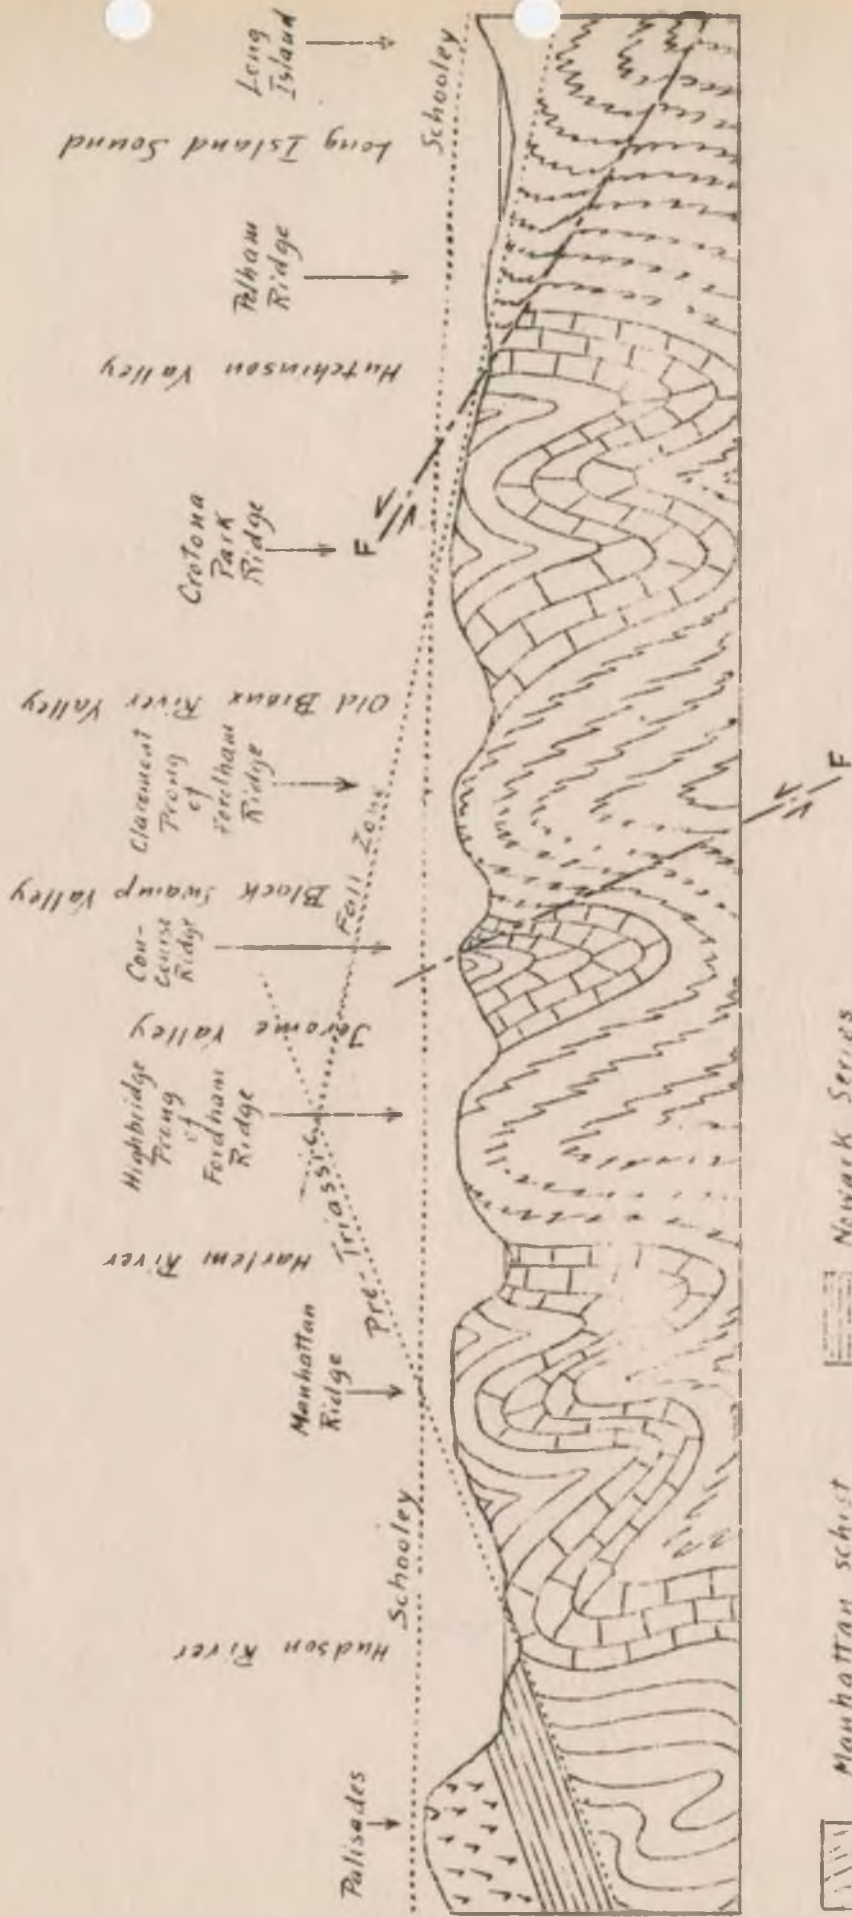 Palisades
Hudson River
Schooley
Manhattan
Ridge
Harlem River
Pre-Triassic
Highbridge
Prong
of
Fordham
Ridge
Jerome Valley
Con-
course
Ridge
Black Swamp Valley
Fall Zone
Claremont
Prong
of
Fordham
Ridge
Old Bronx River Valley
Crotona
Park
Ridge
F
F
Hutchinson Valley
Pelham
Ridge
Long Island Sound
Schooley
Long
Island
Manhattan schist
Newark Series